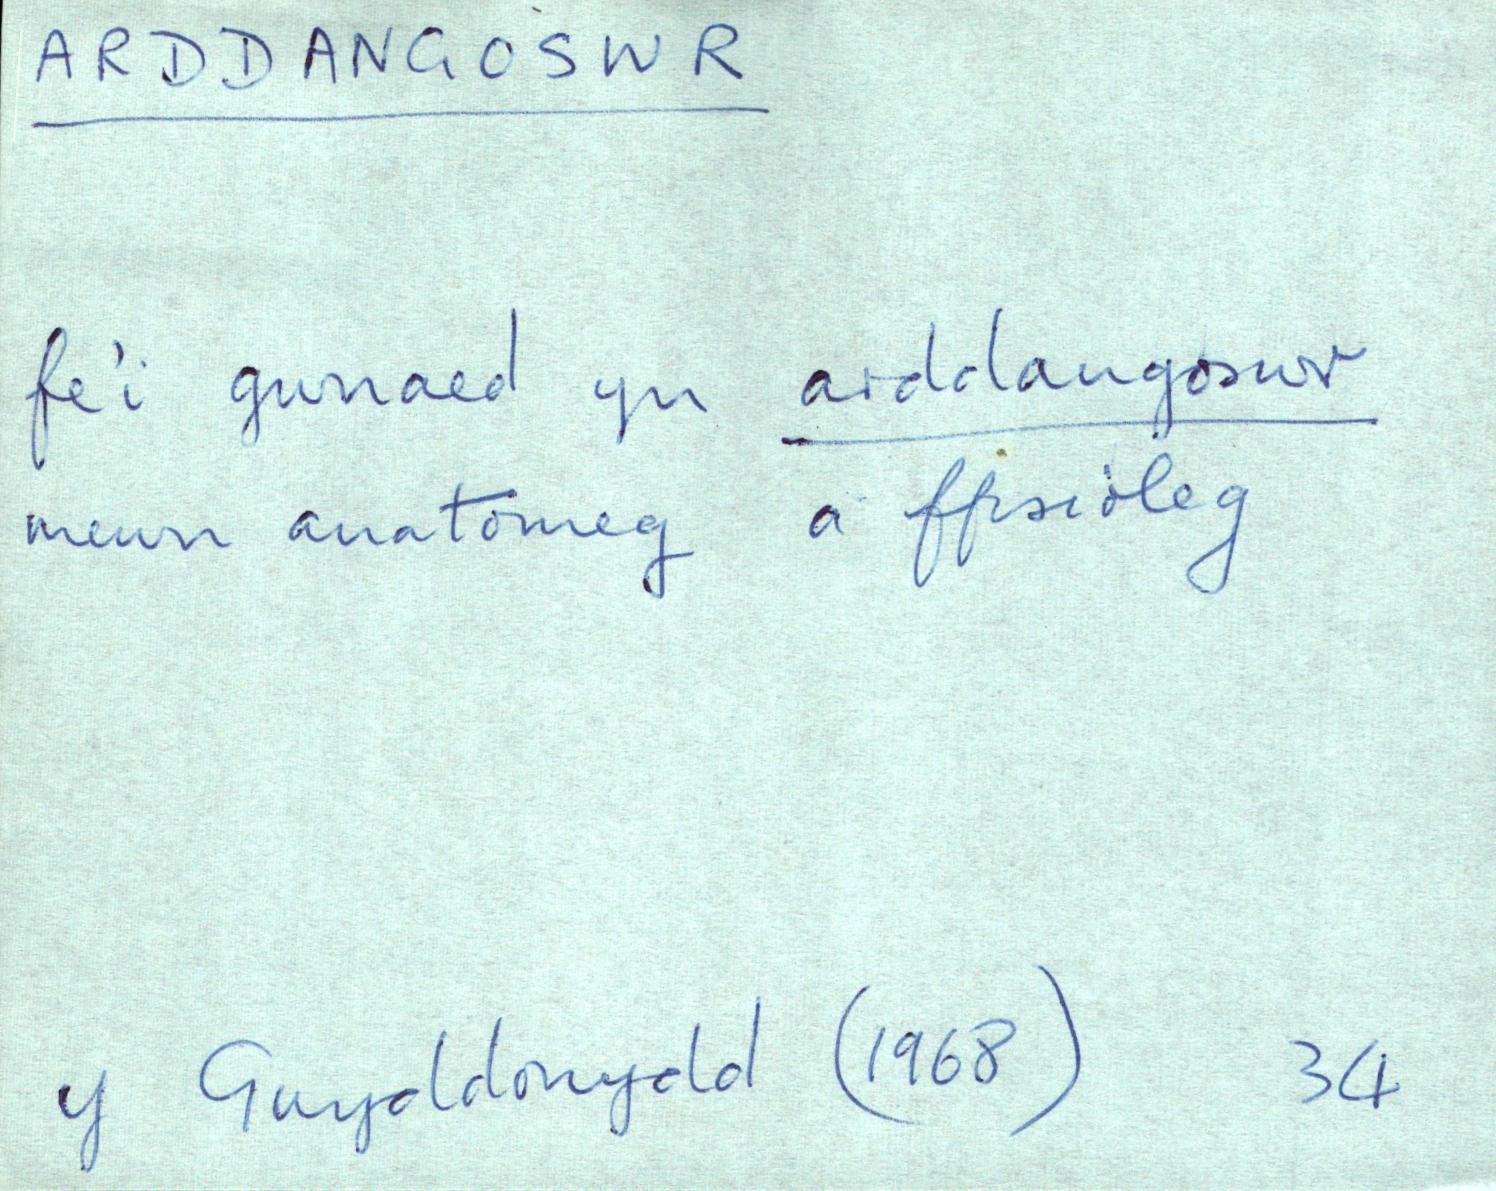 ARDDANGOSWR
fe'i gwnaed yn arddangoswr
mewn anatomeg a ffisioleg
y Gwyddonydd (1968) 34